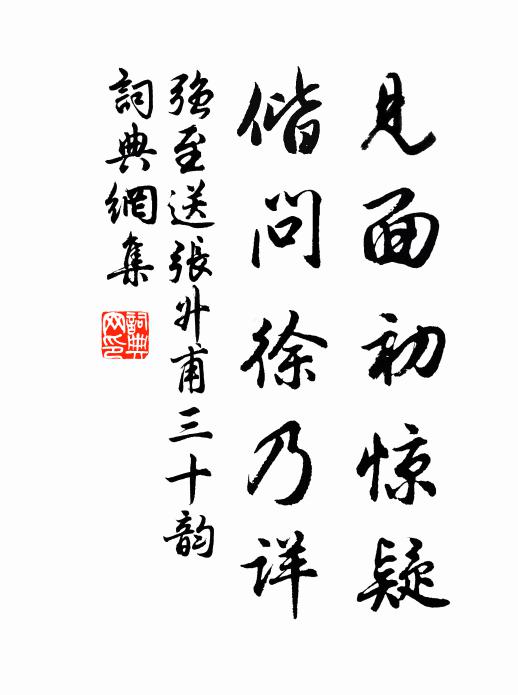 見面初惊疑
偕问徐乃详
强至送張升甫三十韵
詞典網集
詞典网印